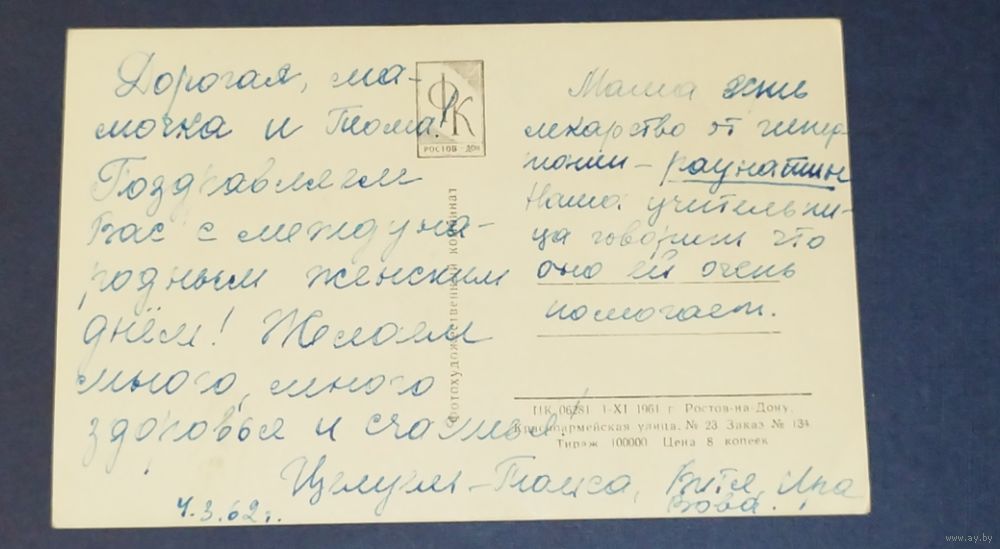 Дорогая, ма-
мочка и Тома!
Поздравляем
Вас с междуна-
родным женским
днём! Желаем
много, много
здоровья и счастья!
Целуем - Таиса, Витя, Ира
Вова.
4.3.62 г.
ФК
РОСТОВ - ДОН
Фотохудожественный комбинат
Мама есть
лекарство от гипер
тонии - раунатин
Наша учительни-
ца говорит что
оно ей очень
помогает.
ПК 06281 1-XI 1961 г Ростов-на-Дону,
Красноармейская улица, № 23 Заказ № 134
Тираж 100000 Цена 8 копеек
www.ay.by